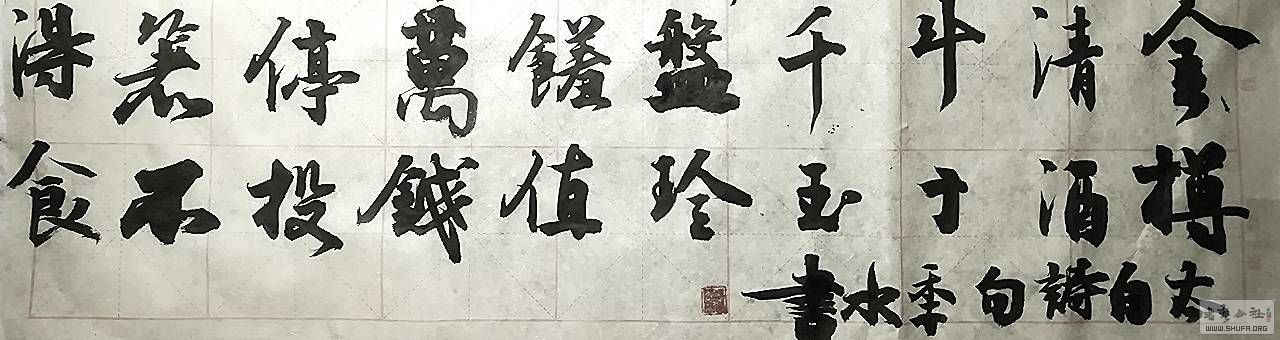 金樽
清酒
斗十
千玉
盤珍
饈值
萬錢
停投
箸不
得食
太白詩句季水書
書藝公社
WWW.SHUFA.ORG